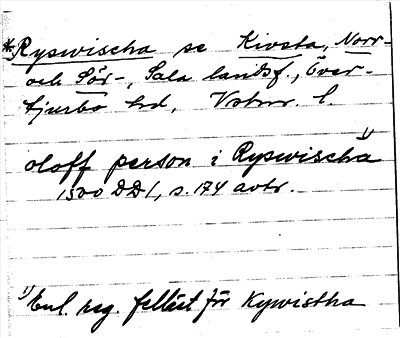 *Ryswischa se Kivsta, Norr-
och Sör-, Sala landsf., Över-
tjurbo hd, Vstm. l.
oloff person i Ryswischa 1)
1500 DD1, s. 174 avtr.
1) Enl. reg. felläst för Kywistha